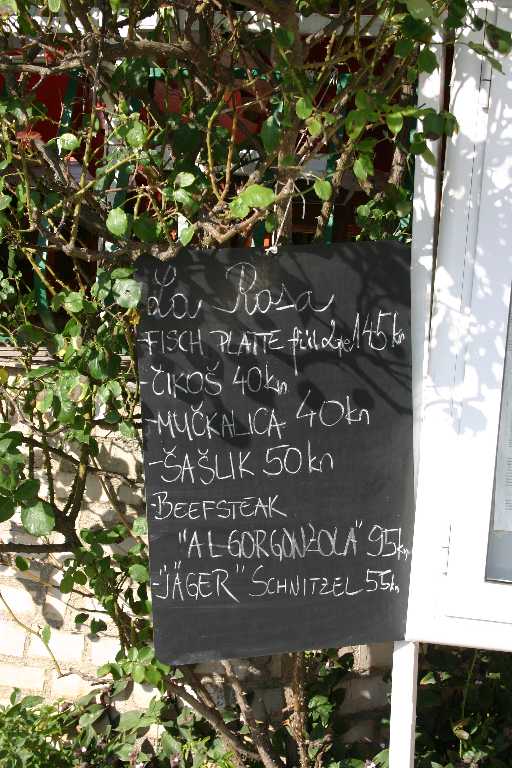 La Rosa
-FISCH PLATTE für 2 pe 145 kn
-ČIKOŠ 40 kn
-MUČKALICA 40 kn
-ŠAŠLIK 50 kn
BEEFSTEAK
"AL GORGONZOLA" 95 kn
-"JÄGER" SCHNITZEL 55 kn